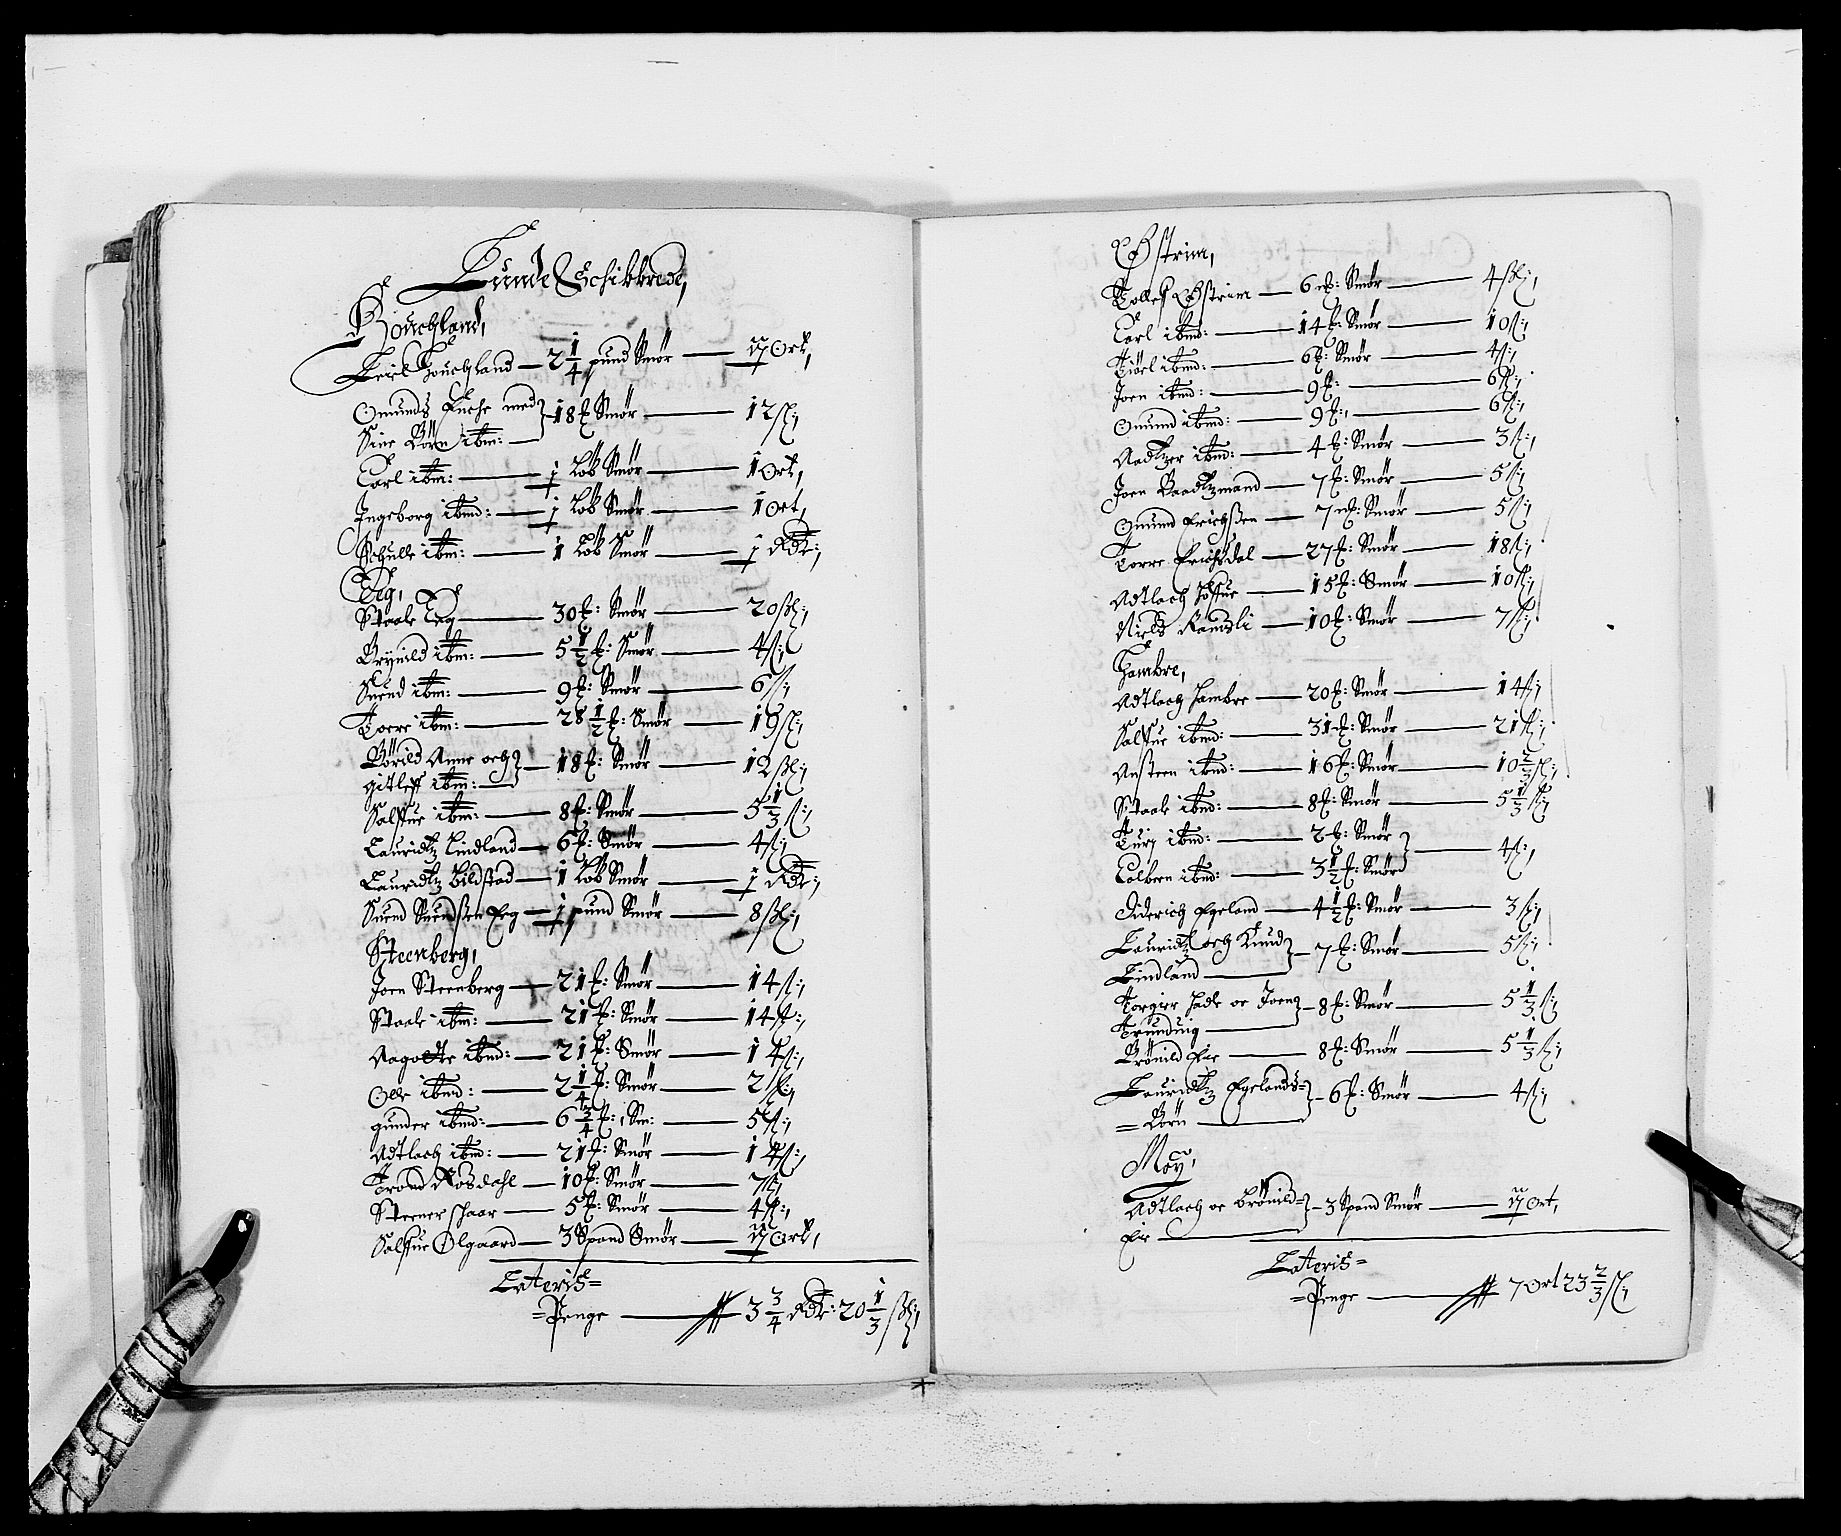 Lunde Schibbrede,
Houchland,
Eriel Houchland — 2 1/4 pund Smør — ij Ort,
Omunds Encke med
Sine Börn ibm: — 18 ℔ Smør — 12 ſß;
Carl ibm: — 1 Løb Smør — 1 Ort,
Ingeborg ibmd: — 1 Løb Smør — 1 Ort,
Schulle ibm: — 1 Løb Smør — 1 Rdr:
Eeg,
Staale Eeg — 30 ℔: Smør — 20 ſß;
Brynild ibm: — 5 1/2 ℔: Smør — 4 ß;
Suend ibm: — 9 ℔: Smør — 6 ß;
Torre ibm: — 28 1/2 ℔: Smør — 19 ß;
Börild Anne och
gitleff ibm: — 18 ℔: Smør — 12 ß;
Salffue ibm: — 8 ℔: Smør — 5 1/3 ß;
Lauridtz Lindland — 6 ℔: Smør — 4 ß;
Lauridtz Bilstad — 1 Løb Smør — 1 Rdr:
Suend Suendßen Eeg — 1 pund Smør — 8 ß;
Steenberg,
Joen Steenberg — 21 ℔: Smør — 14 ß;
Staale ibm: — 21 ℔: Smør — 14 ß;
Aagodtte ibmd: — 21 ℔: Smør — 14 ß;
Olle ibmd: — 2 1/4 ℔: Smør — 2 ß;
gunder ibmd: — 6 3/4 ℔: Sm: — 5 ß;
Adtlach ibmd: — 21 ℔: Smør — 14 ß;
Trond Rosdahl — 10 ℔: Smør — 7 ß;
Steener schaar — 5 ℔: Smør — 4 ß;
Salffue Ølgaard — 3 Spand Smør — ij Ort,
Lateris=
=Penge — 3 3/4 Rdr: 20 1/3 ß;
Østrim,
Tollef Østrim — 6 ℔: Smør — 4 ß;
Carl ibmd: — 14 ℔: Smør — 10 ß;
Kiörl ibmd: — 6 ℔: Smør — 4 ß;
Joen ibmd: — 9 ℔: — 6 ß;
Omund ibmd: — 9 ℔: — 6 ß;
Aadtzer ibmd: — 4 ℔: Smør — 3 ß;
Joen Baadtzmand — 7 ℔: Smør — 5 ß;
Omund Erichßen — 7 ℔: Smør — 5 ß;
Torre Erichsdal — 27 ℔: Smør — 18 ß;
Adtlach — 15 ℔: Smør — 10 ß;
Niels Ramsli — 10 ℔: Smør — 7 ß;
Hambre,
Adtlach Hambre — 20 ℔: Smør — 14 ß;
Salffue ibmd: — 31 ℔: Smør — 21 ß;
Ansteen ibmd: — 16 ℔: Smør — 10 2/3 ß;
Staale ibmd: — 8 ℔: Smør — 5 1/3 ß;
Turj ibmd: — 2 ℔: Smør
Colbern ibmd: — 3 1/2 ℔: Smør — 4 ß;
Diderich Egeland — 4 1/2 ℔: Smør — 3 ß;
Lauridtz och Knud
Lindland — 7 ℔: Smør — 5 ß;
Torgier Hade oc Joen
Trunduig — 8 ℔: Smør — 5 1/3 ß;
Brönild Eie — 8 ℔: Smør — 5 1/3 ß;
Lauridtz Egelands=
=Börn — 6 ℔: Smør — 4 ß;
Moy,
Adtlach oc Brönild=
Eie — 3 Spand Smør — ij Ort,
Lateris=
=Penge — 7 Ort 23 2/3 ß;